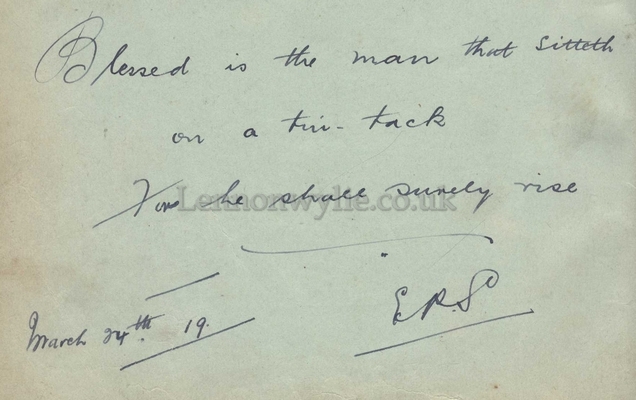 Blessed is the man that sitteth
on a tin-tack
For he shall surely rise
Lennonwylie.co.uk
March 24th 19.